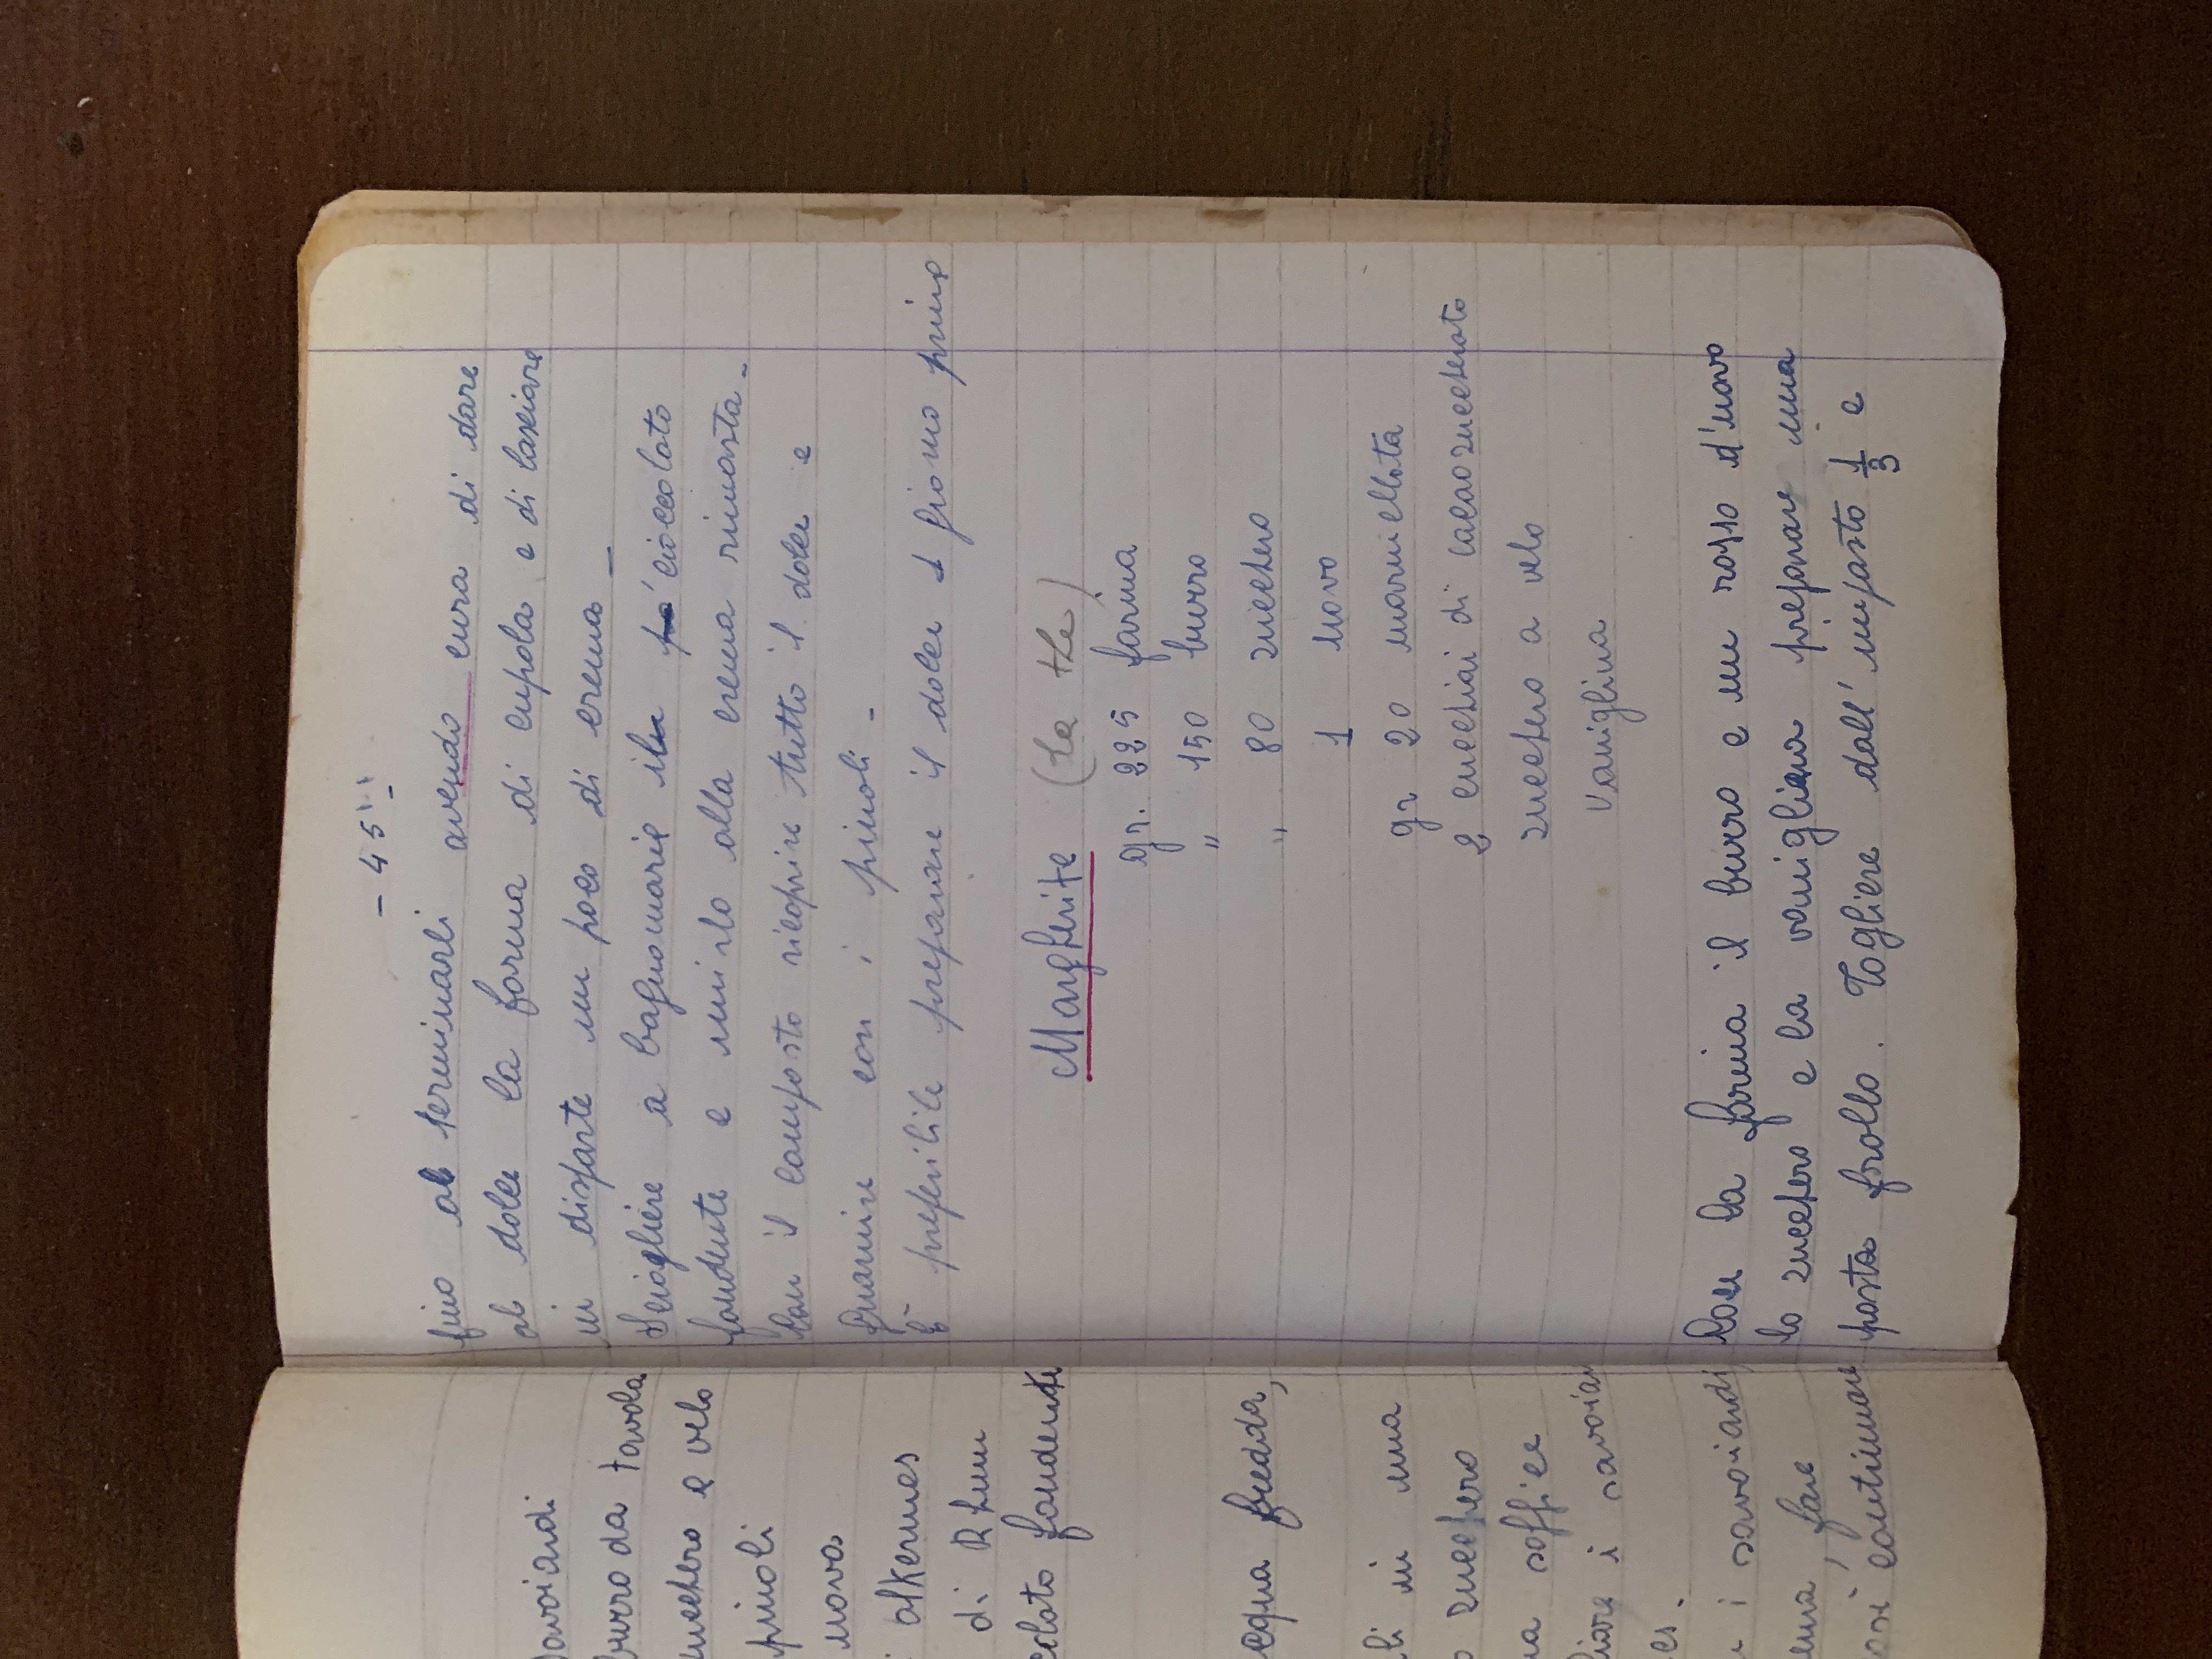 Savoiardi
burro da tavola
zucchero a velo
pinoli
uova
alkermes
di Rhum
fondente
acqua fredda,
in una
zucchero
soffice
i savoiar
i savoiardi
fare
così continuare
- 45 -
fino al terminarli avendo cura di dare
al dolce la forma di cupola e di lasciare
in disparte un poco di crema -
Sciogliere a bagnomarie il cioccolato
fondente e unirlo alla crema rimasta -
Con il composto ricoprire tutto il dolce e
guarnire con i pinoli -
È preferibile preparare il dolce 1 giorno prima
Margherite (da the)
gr. 225 farina
" 150 burro
" 80 zucchero
1 uovo
gr 20 marmellata
2 cucchiai di cacao zuccherato
zucchero a velo
Vaniglina
Con la farina il burro e un rosso d'uovo
lo zucchero e la vaniglina preparare una
pasta frolla. Togliere dall'impasto 1/3 e